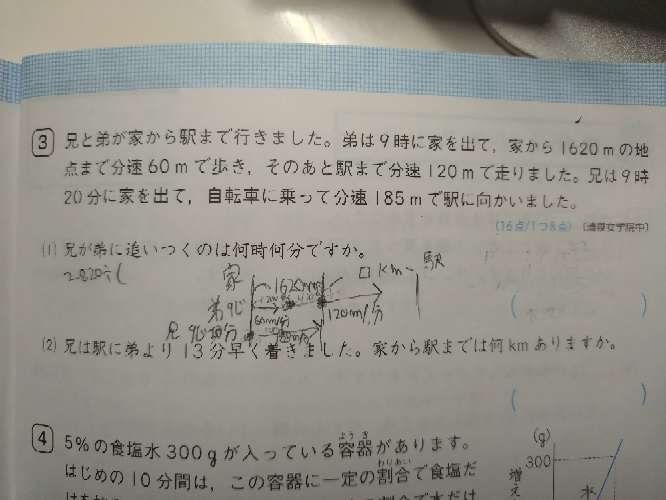 3 兄と弟が家から駅まで行きました。弟は9時に家を出て，家から1620mの地
点まで分速60mで歩き，そのあと駅まで分速120mで走りました。兄は9時
20分に家を出て，自転車に乗って分速185mで駅に向かいました。
(16点/1つ8点) 〔清泉女学院中〕
(1) 兄が弟に追いつくのは何時何分ですか。
家 1620m □km 駅
弟9じ
60m/分 120m/分
兄 9じ20分
(2) 兄は駅に弟より13分早く着きました。家から駅までは何kmありますか。
4 5％の食塩水300gが入っている容器があります。
はじめの10分間は，この容器に一定の割合で食塩だ
(g)
300
増え
水